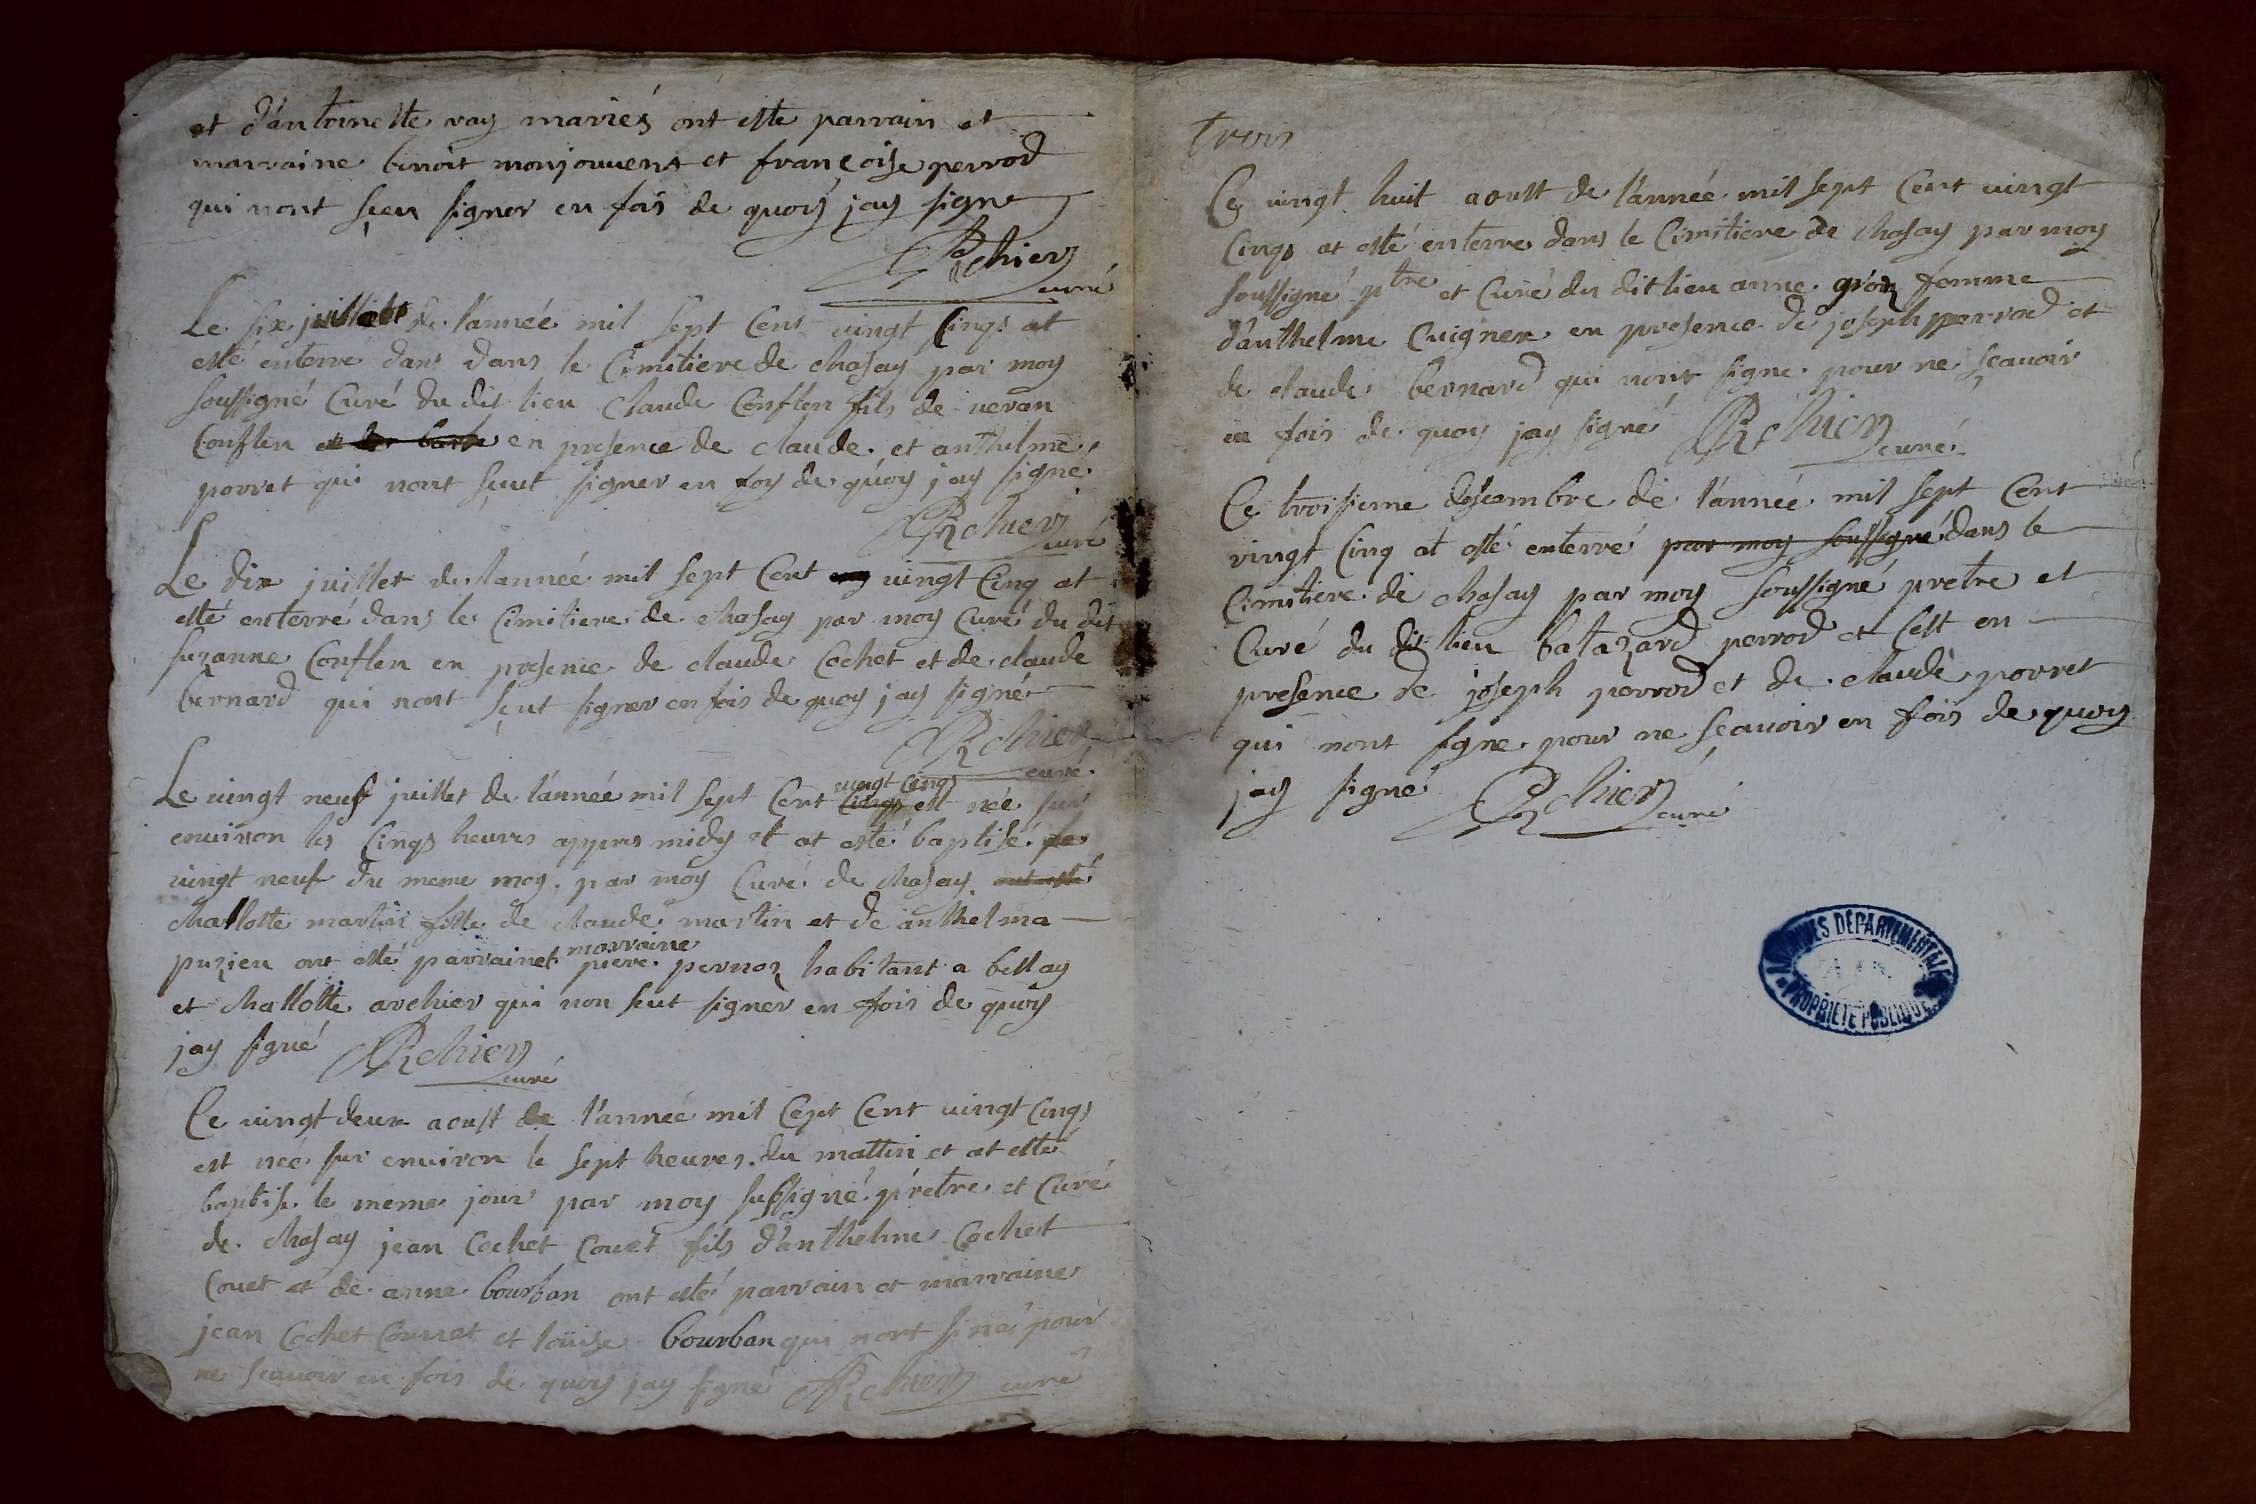 et d'antoinette vay mariés ont este parrain et
marraine benoit monjouvent et françoise perrod
qui nont sceu signer en fois de quoy jay signe
Archier
curé
Le six juillet de l'année mil sept Cens vingt Cinqs at
esté enterre dans dans le Cimitiere de chasay par moy
soussigné Curé du dit lieu Claude Conflen fils de veran
Conflen en presence de claude et anthelme
porret qui nont sçut signer en foy de quoy jay signe
Archier
curé
Le dix juillet de l'année mil sept Cent vingt Cinq at
esté enterré dans le Cimitiere de chasay par moy Curé du dit
suzanne Conflen en presence de claude Cochet et de claude
bernard qui nont sçut signer en fois de quoy jay signé
Archier
curé
vingt Cinqs
Le vingt neuf juillet de l'année mil sept Cent Cinqs est née sur
environ les Cinqs heures appres midy et at esté baptisé le
vingt neuf du meme moy par moy Curé de chasay
challotte martin fille de claude martin et de anthelma
marraine
puzieu ont esté parrain et piere pernoz habitant a bellay
et challotte archier qui non seut signer en fois de quoy
jay signé Archier
curé
Ce vingt deux aoust de l'année mil Cept Cent vingt Cinqs
est née sur environ le sept heures du mattin et at esté
baptisé le meme jour par moy sussigné prêtre et Curé
de chasay jean Cochet Couet fils d'anthelme Cochet
Couet et de anne bourban ont esté parrain et marraine
jean Cochet Couet et loüise bourban qui nont siné pour
ne scavoir en fois de quoy jay signé Archier curé
trois
Ce vingt huit aoust de l'année mil sept Cent vingt
Cinqs at esté enterre dans le Cimitiere de chasay par moy
soussigné ptre et Curé du dit lieu anne femme
d'anthelme Cuignex en presence de joseph perrod et
de claude bernard qui nont signe pour ne sçeavoir
en fois de quoy jay signé Archier
curé
Ce troisieme descembre de l'année mil sept Cent
vingt Cinq at esté enterré par moy soussigné dans le
Cimitiere de chasay par moy soussigné pretre et
Curé du dit lieu batazard perrod et cest en
presence de joseph perrod et de claude porret
qui nont signe pour ne sçeavoir en fois de quoy
jay signé Archier
curé
ARCHIVES DEPARTEMENTALES
AIN
PROPRIÉTÉ PUBLIQUE